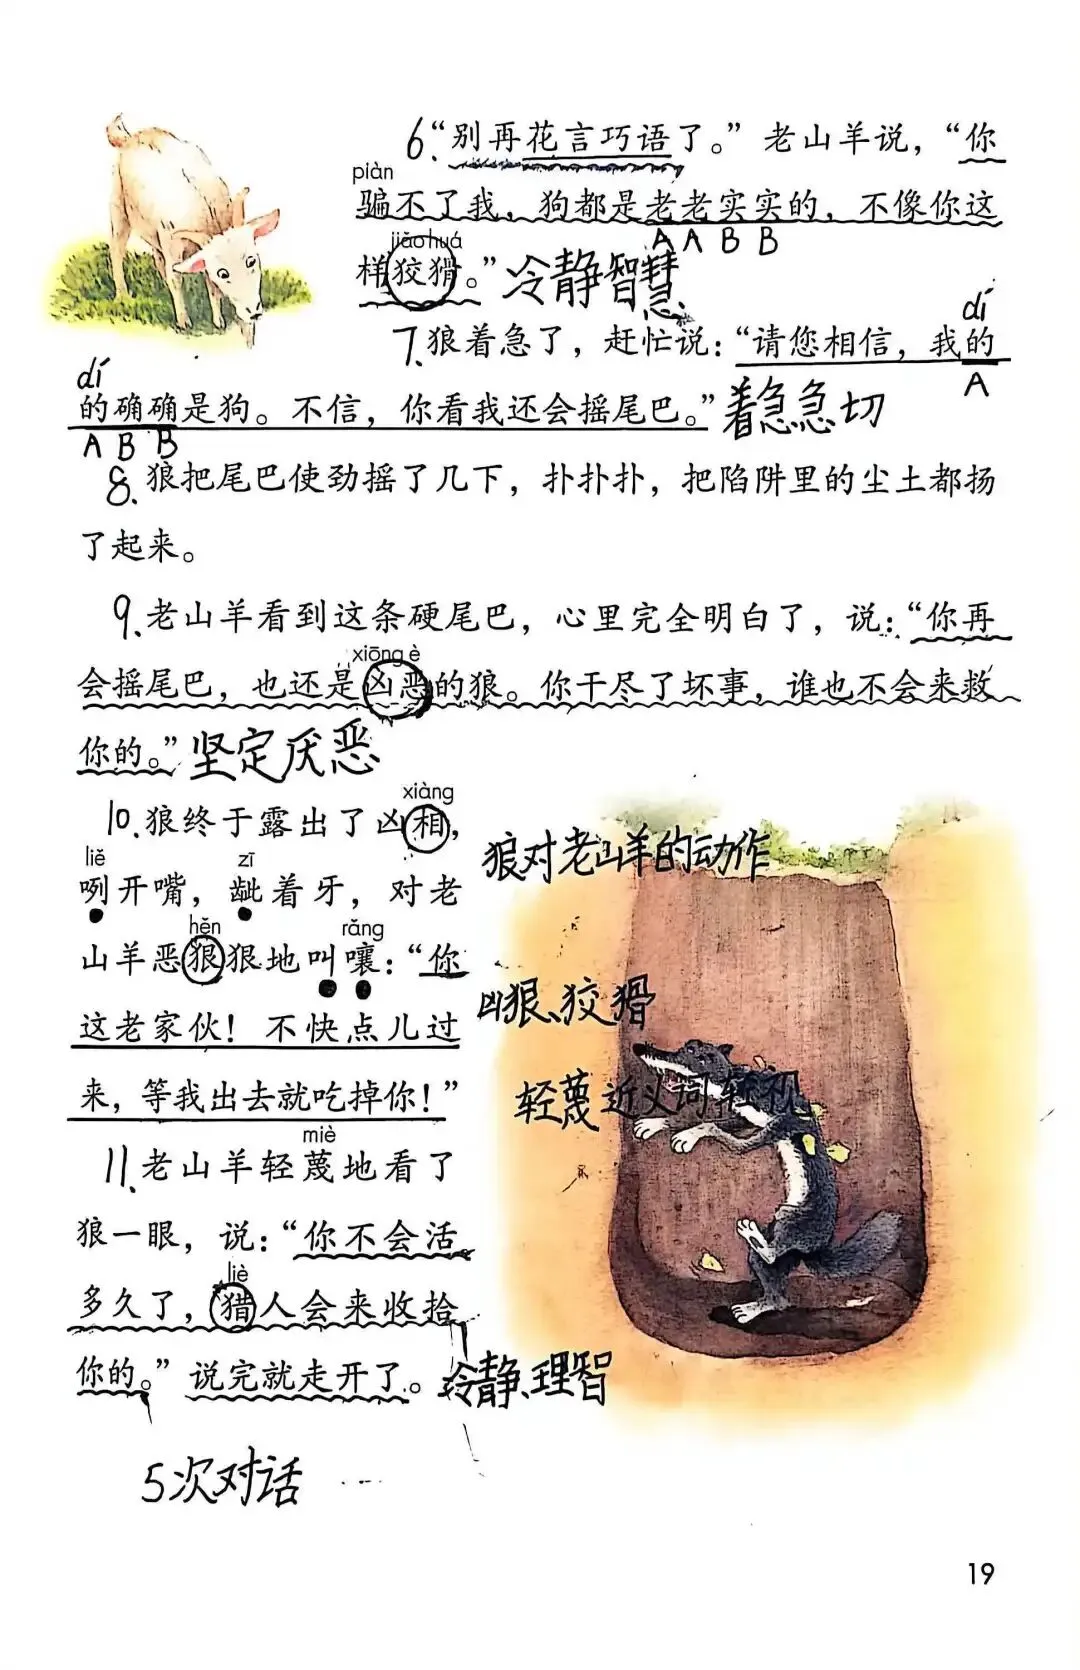 6.“别再花言巧语了。”老山羊说，“你
piàn
骗不了我，狗都是老老实实的，不像你这
A A B B
jiǎo huá
样狡猾。”冷静智慧
dí
7.狼着急了，赶忙说：“请您相信，我的
A
dí
的确确是狗。不信，你看我还会摇尾巴。”着急急切
A B B
8.狼把尾巴使劲摇了几下，扑扑扑，把陷阱里的尘土都扬
了起来。
9.老山羊看到这条硬尾巴，心里完全明白了，说：“你再
xiōng è
会摇尾巴，也还是凶恶的狼。你干尽了坏事，谁也不会来救
你的。”坚定厌恶
xiàng
10.狼终于露出了凶相，
狼对老山羊的动作
liě zī
咧开嘴，龇着牙，对老
hěn rǎng
山羊恶狠狠地叫嚷：“你
凶狠、狡猾
这老家伙！不快点儿过
来，等我出去就吃掉你！”
轻蔑近义词轻视
miè
11.老山羊轻蔑地看了
狼一眼，说：“你不会活
liè
多久了，猎人会来收拾
你的。”说完就走开了。冷静、理智
5次对话
19